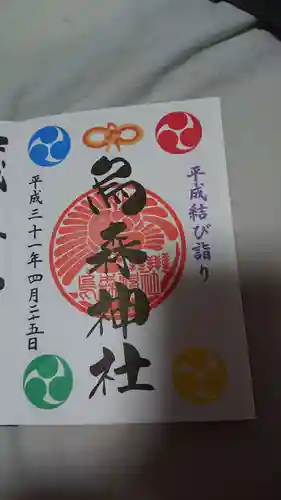 平成結び詣り
烏森神社
平成三十一年四月二十五日